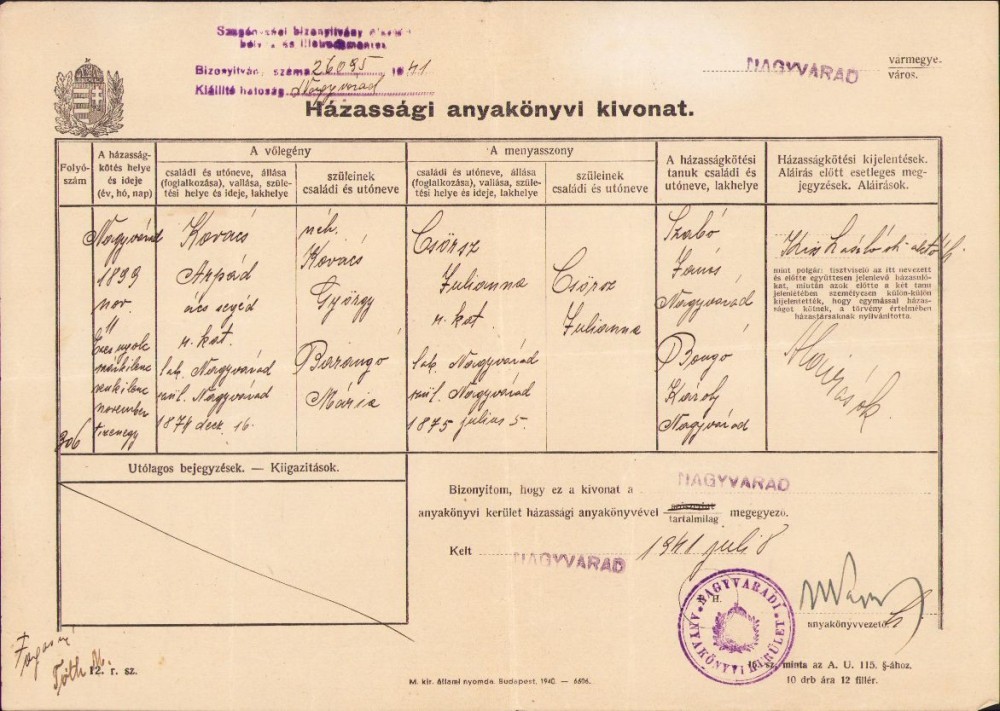 Bizonyítvány száma 26095 1941
Kiállító hatóság Nagyvárad
NAGYVÁRAD
vármegye.
város.
Házassági anyakönyvi kivonat.
Folyó-
szám
A házasság-
kötés helye
és ideje
(év, hó, nap)
A vőlegény
családi és utóneve, állása
(foglalkozása), vallása, szüle-
tési helye és ideje, lakhelye
szüleinek
családi és utóneve
A menyasszony
családi és utóneve, állása
(foglalkozása), vallása, szüle-
tési helye és ideje, lakhelye
szüleinek
családi és utóneve
A házasságkötési
tanuk családi és
utóneve, lakhelye
Házasságkötési kijelentések.
Aláírás előtt esetleges meg-
jegyzések. Aláírások.
306
Nagyvárad
1899
nov.
11
Ezernyolc
százkilenc
venkilenc
november
tizenegy
Kovács
Árpád
ács segéd
r. kat.
lak. Nagyvárad
szül. Nagyvárad
1874 decz. 16.
néh.
Kovács
György
Mária
Csörsz
Julianna
r. kat.
lak. Nagyvárad
szül. Nagyvárad
1875 július 5.
Csörsz
Julianna
Szabó
János
Nagyvárad
Károly
Nagyvárad
mint polgár: tisztviselő az itt nevezett
és előtte együttesen jelenlevő házasuló-
kat, miután azok előtte a két tanu
jelenlétében személyesen külön-külön
kijelentették, hogy egymással házas-
ságot kötnek, a törvény értelmében
házastársaknak nyilvánította.
Aláírások
Utólagos bejegyzések. — Kiigazítások.
Bizonyítom, hogy ez a kivonat a NAGYVÁRAD
anyakönyvi kerület házassági anyakönyvével tartalmilag megegyező.
Kelt NAGYVÁRAD 1941 juli 8
P. H.
NAGYVÁRADI ANYAKÖNYVI KERÜLET
anyakönyvvezető
Tóth
12. r. sz.
M. kir. állami nyomda. Budapest, 1940. — 6606.
minta az A. U. 115. §-ához.
10 drb ára 12 fillér.